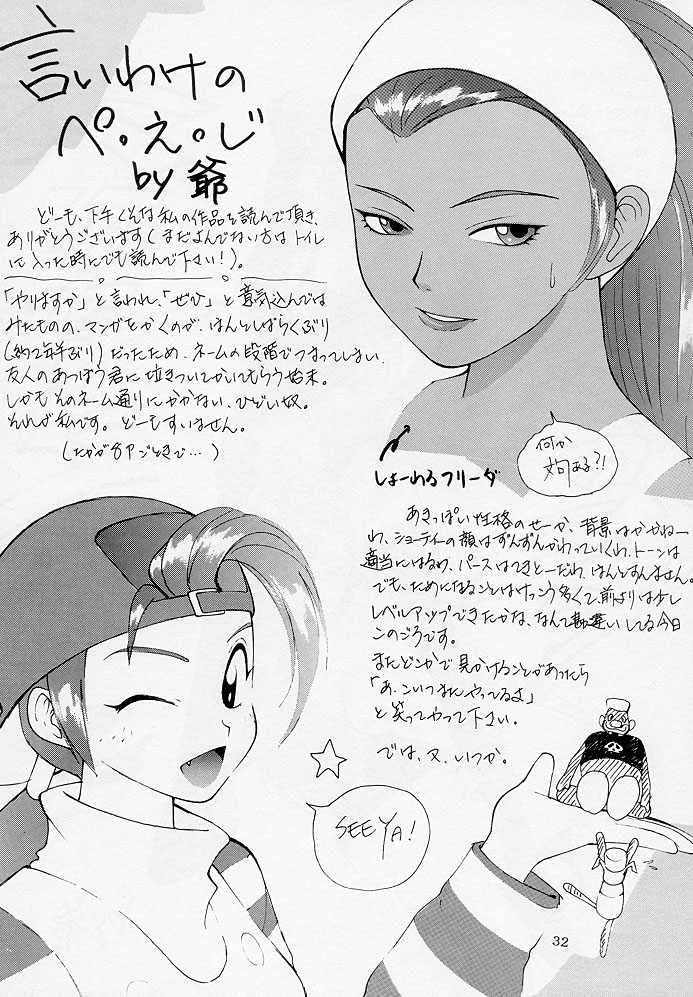 言いわけの
ぺ・え・じ
by 爺
どーも、下手くそな私の作品を読んで頂き、
ありがとうございます(まだよんでない方はトイレ
に入った時にでも読んで下さい!)。
「やりますか」と言われ、「ぜひ」と意気込んでは
みたものの、マンガをかくのが、ほんとしばらくぶり
(約2年半ぶり)だったため、ネームの段階でつまってしまい、
友人のあっぽう君に泣きついてかいてもらう始末。
しかもそのネーム通りにかかない、ひどい奴。
それが私です。どーもすいません。
(たかが8Pごときで…)
しょーわるフリーダ
何か
文句ある?!
あきっぽい性格のせーか、背景はかかねー
わ、ショーティーの顔はずんずんかわっていくわ、トーンは
適当にはるわ、パースはてきとーだわ、ほんとすんません。
でも、ためになることはけっこう多くて、前よりは少し
レベルアップできたかな、なんて勘違いしてる今日
このごろです。
またどこかで見かけることがあったら
「あ、こいつまたやってるよ」
と笑ってやって下さい。
では、又、いつか。
SEE YA!
32